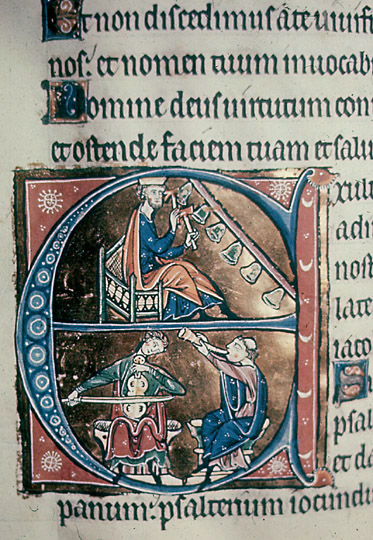 Et non discedimus a te uiuifi
nos: et nomen tuum inuocab
Domine deus uirtutum con
et ostende faciem tuam et salu
Exul
adi
nost
late
iaco
S
psal
et da
panum: psalterium iocundu